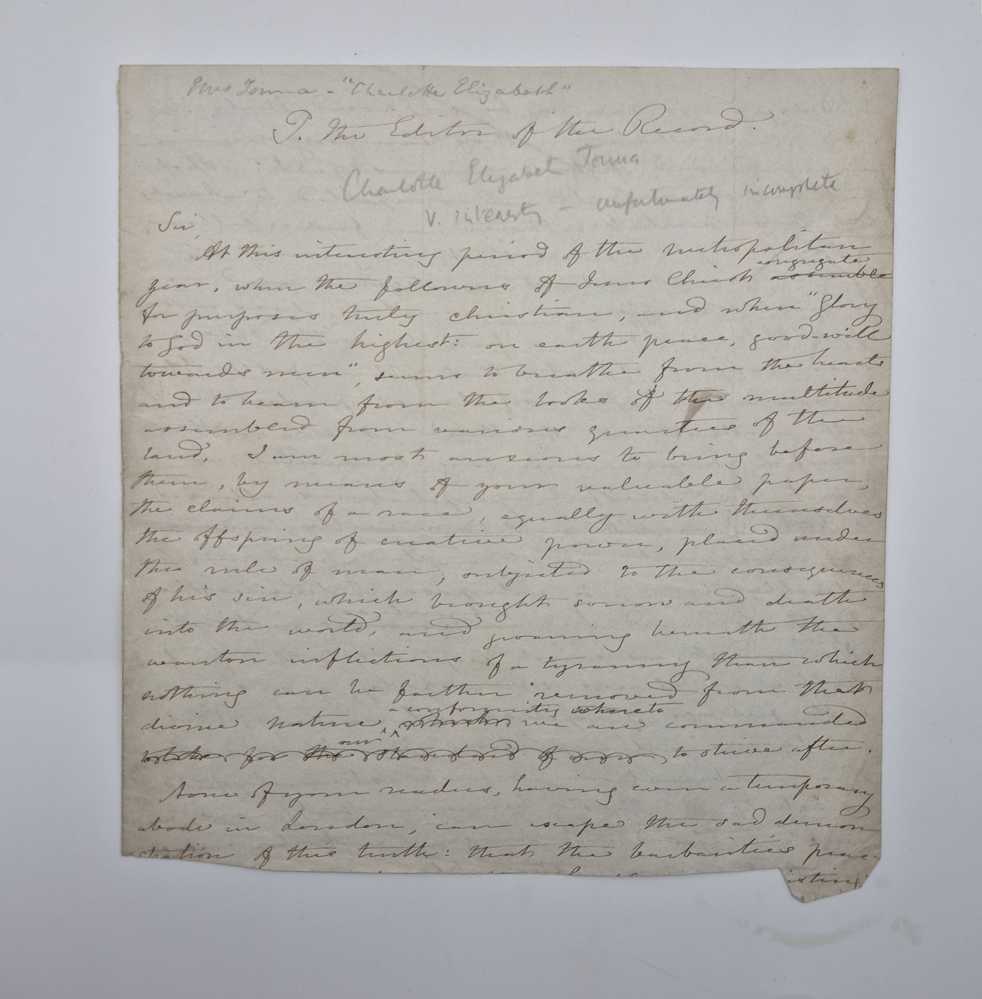 Mrs Tonna - "Charlotte Elizabeth"
To the Editor of the Record.
Charlotte Elizabeth Tonna
V. interestg - unfortunately incomplete
Sir,
At this interesting period of the metropolitan
year, when the followers of Jesus Christ congregate assemble
for purposes truly christian, and when "Glory
to God in the highest: on earth peace, good-will
towards men", seems to breathe from the hearts
and to beam from the looks of the multitude
assembled from various quarters of the
land, I am most anxious to bring before
them, by means of your valuable paper,
the claims of a race, equally with themselves
the offspring of creative power, placed under
the rule of man, subjected to the consequences
of his sin, which brought sorrow and death
into the world, and groaning beneath the
wanton inflictions of a tyranny than which
nothing can be farther removed from that
conformity whereto
divine nature, we are commanded
our
for the standard of to strive after.
None of your readers, having even a temporary
abode in London, can escape the sad demon
stration of this truth: that the barbarities prac-